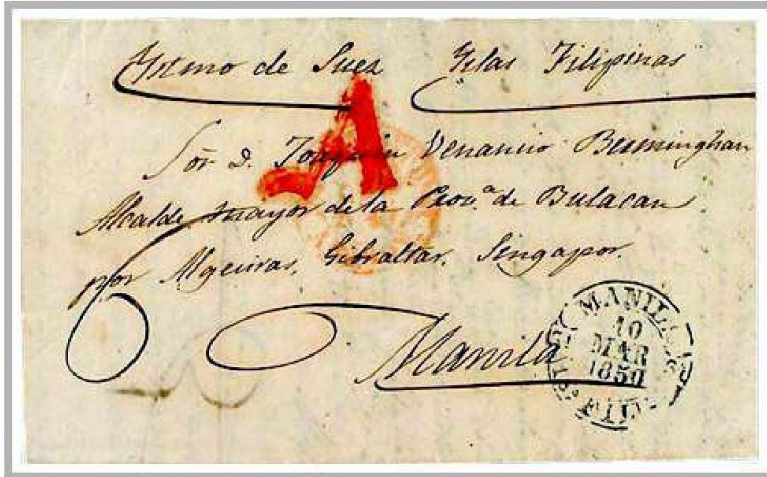 Ystmo de Suez Yslas Filipinas
A
Sor. D. Joaquin Venancio Bermingham
Alcalde mayor de la Prov.a de Bulacan
por Algeciras, Gibraltar, Singapor.
Manila
MANILA
10
MAR
1850
FILI